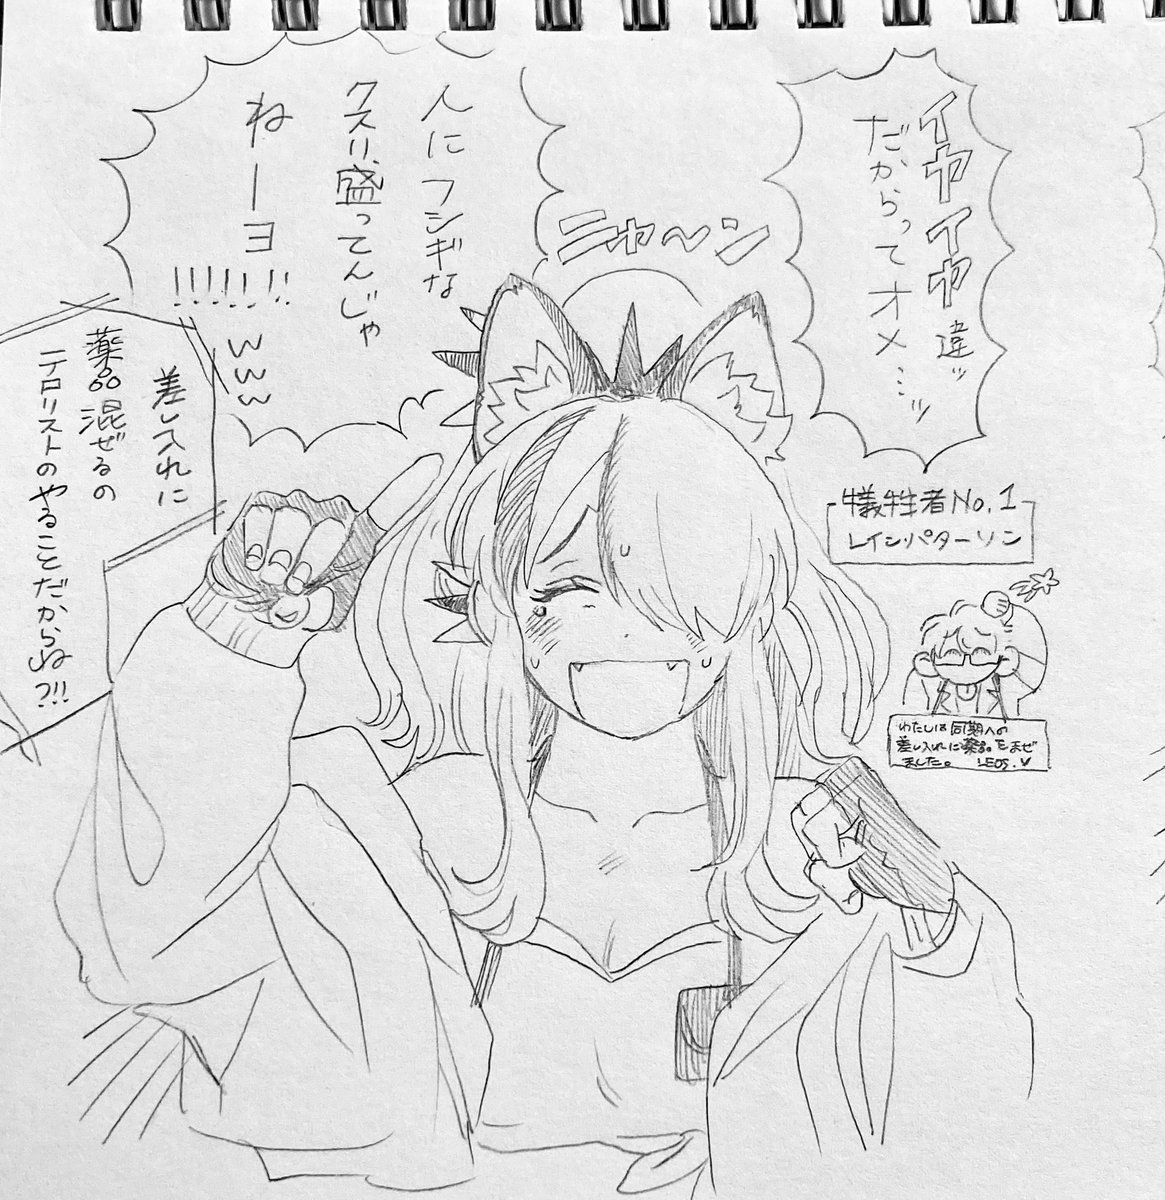 イヤイヤ違ッ
だからってオメ…ッ
ニャ～ン
人にフシギな
クスリ盛ってんじゃ
ねーヨ
!!!!!!! www
差し入れに
薬品混ぜるの
テロリストのやることだからね?!!
犠牲者No.1
レインパターソン
わたしは同期への
差し入れに薬品をまぜ
ました。 LEOS.